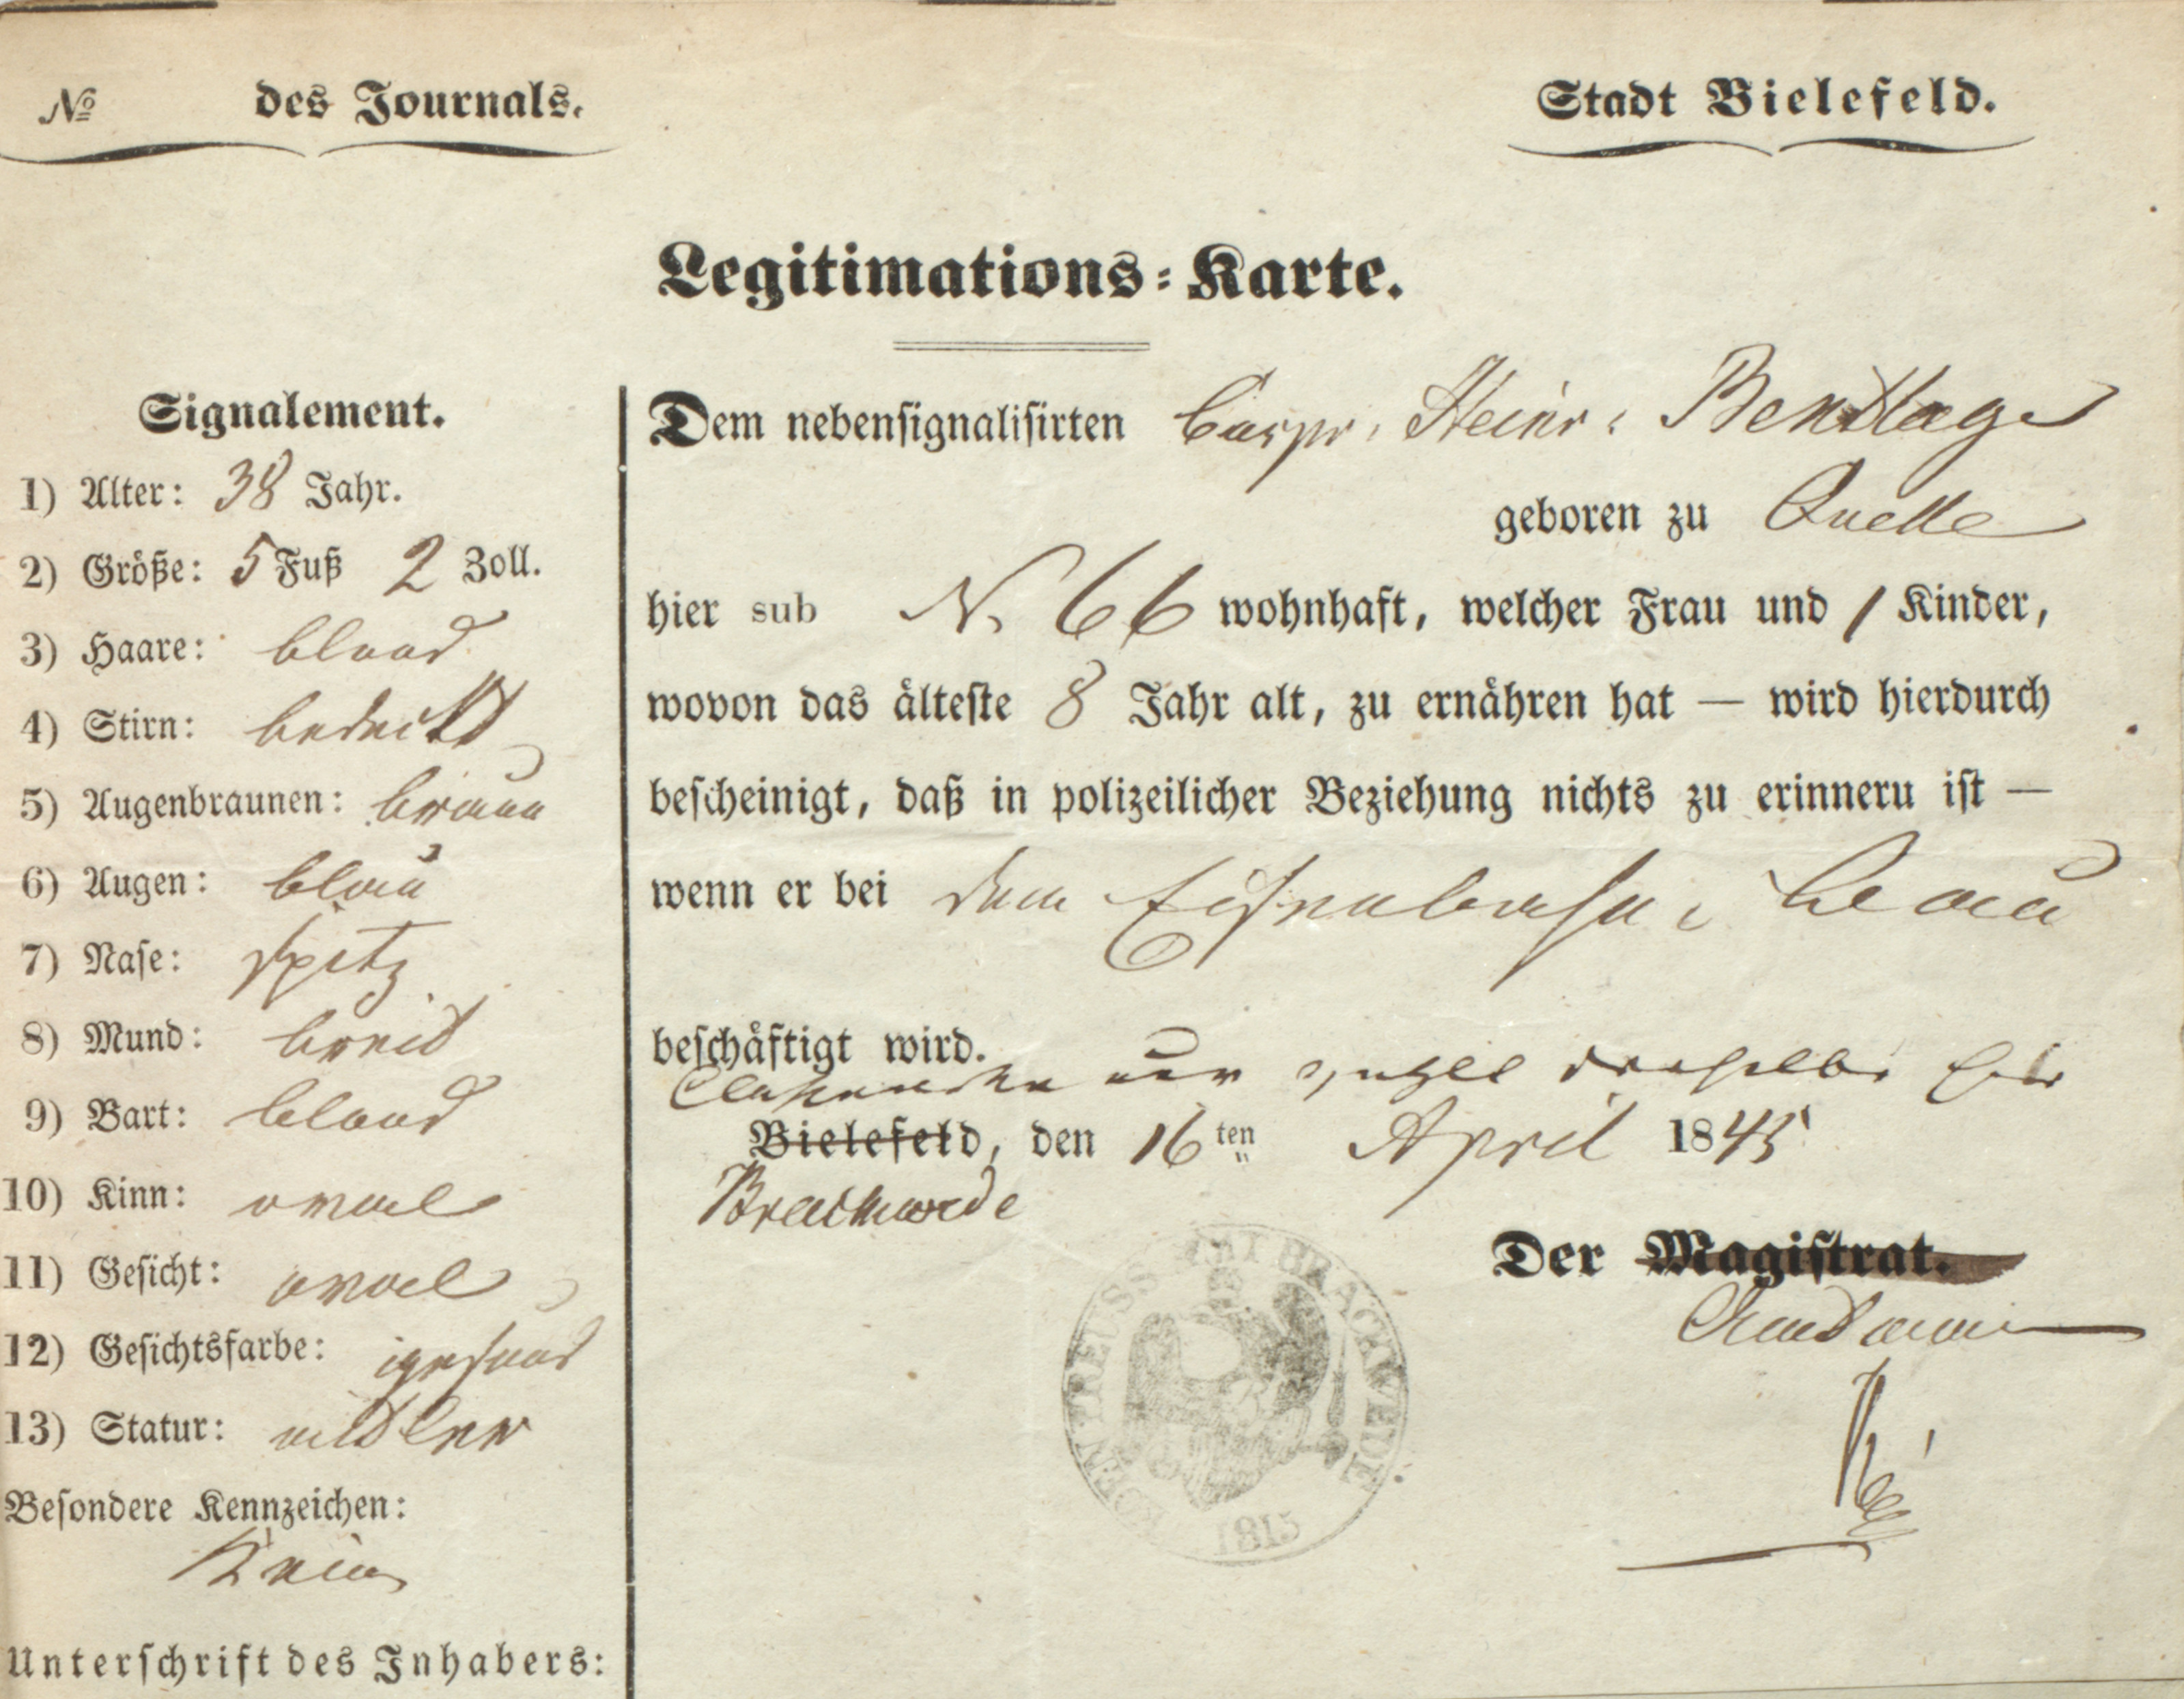 № des Journals.
Stadt Bielefeld.
Legitimations-Karte.
Signalement.
1) Alter: 38 Jahr.
2) Größe: 5 Fuß 2 Zoll.
3) Haare: blond
4) Stirn: bedeckt
5) Augenbraunen: braun
6) Augen: blau
7) Nase: spitz
8) Mund: breit
9) Bart: blond
10) Kinn: oval
11) Gesicht: oval
12) Gesichtsfarbe: gesund
13) Statur: mittler
Besondere Kennzeichen:
Keine
Unterschrift des Inhabers:
Dem nebensignalisirten Caspr. Heinr. Bentlage
geboren zu Quelle
hier sub N. 66 wohnhaft, welcher Frau und 1 Kinder,
wovon das älteste 8 Jahr alt, zu ernähren hat — wird hierdurch
bescheinigt, daß in polizeilicher Beziehung nichts zu erinnern ist —
wenn er bei dem Eisenbahn-Bau
beschäftigt wird.
Bielefeld, den 16ten April 1845
Brackwede
Der Magistrat.
Amtmann
KOEN. PREUSS. AMT BRACKWEDE
1815